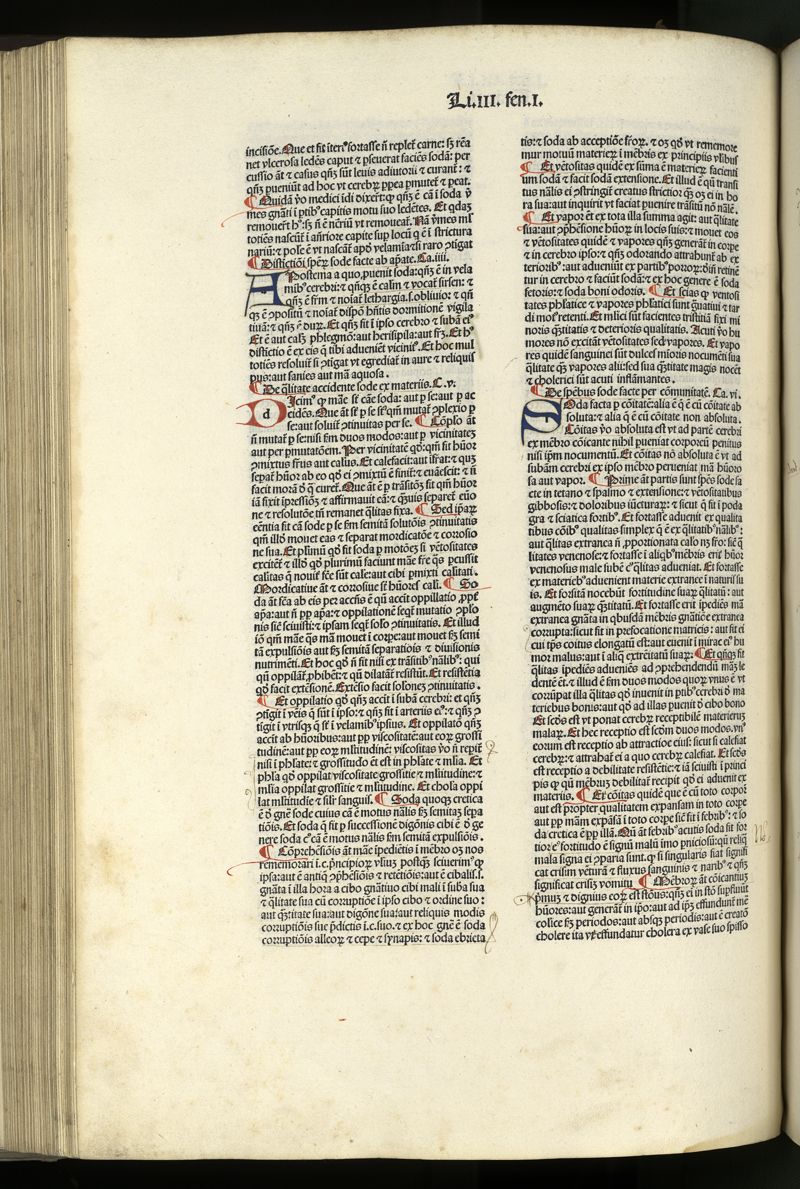 Li.III. fen.I.
incisiõe. Que et fit iterꝰ fortasse ñ replet carne: sꝫ rẽa
net vlcerosa ledẽs caput ⁊ pseuerat faciẽs sodã: per
cussio aũt ⁊ casus qñꝫ sũt leuis adiutorii ⁊ curant: ⁊
qñꝫ pueniũt ad hoc vt cerebꝝ ppea pmutet ⁊ peat.
¶ Quidã vo medici idi dixerũt: qꝫ qñꝫ ẽ cã ĩ soda v̾
mes gnãti ĩ ptibꝰ capitis motu suo ledẽtes. Et qdaꝫ
toties nascunt ĩ añriore capite sup locũ q ẽ ĩ strictura
¶ Distictioi speꝝ sode facte ab apate. Ca.iiii.
APostema a quo puenit soda: qñꝫ ẽ in vela
mibꝰ cerebri: ⁊ qñqꝫ ẽ calm ⁊ vocat sirsen: ⁊
qñꝫ ẽ frm ⁊ noiat lethargia. s. obliuio: ⁊ qñ
qꝫ ẽ ꝯpositũ ⁊ noiat dispõ hñtis dormitionẽ vigila
tiuã: ⁊ qñꝫ ẽ duꝝ. Et qñꝫ fit ĩ ipso cerebro ⁊ subã eiꝰ.
Et ẽ aut calꝫ phlegmõ: aut herisipila: aut frꝫ. Et hꝰ
distictio ẽ ex eis q̃ tibi adueniẽt vicinis. Et hoc mul
toties resoluit si ꝯtigat vt egrediat in aure ⁊ reliquis
pus: aut sanies aut mã aquosa.
¶ De q̃litate accidente sode ex materiis. C.v.
DIcimꝰ qꝫ mãe sẽ cãe soda: aut p se: aut p ac
cidẽs. Que ãt sẽ p se sẽ qm̃ mutat ꝯplexio p
se: aut soluit ꝯtinuitas per se. ¶ Cõplo ãt
ñ mutat p se: nisi fm duos modos: aut p vicinitateꝫ
aut per pmutatõem. Per vicinitatẽ qd̾: qm̃ fit hũor
ꝯmixtus frus aut calius. Et calefacit: aut ifrat: ⁊ quꝫ
sepat hũor ab eo qd̾ ei ꝯmixtũ ẽ finit: ⁊ euãescit: ⁊ ñ
facit morã d̾ q̃ curet.
iã fixit ipressiõꝫ ⁊ affirmauit eã: ⁊ q̃uis separet eũo
ne ⁊ resolutõe tñ remanet q̃litas fixa. ¶ Sed ipaꝝ
eẽntia fit cã sode p se fm semitã solutõis ꝯtinuitatis
qm̃ illd̾ mouet eas ⁊ separat mordicatõe ⁊ corrosio
ne sua.
excitẽt ⁊ illd̾ qd̾ plurimũ faciunt mãe frẽ qꝫ pcussit
calitas q nouit sẽe sũt cale: aut cibi pmixti calitati.
Mordicatiue ãt ⁊ corrosiue st hũores cali. ¶ So
da ãt sẽa ab eis per accñs ẽ qñ accit oppillatio ꝓpꝭ
apa: aut ñ pp apa: ⁊ oppilationẽ seqt mutatio ꝯplo
nis sic sciuisti: ⁊ ipsam seqt solo ꝯtinuitatis. Et illud
tã expulsiõis aut sꝫ semitã separatiõis ⁊ diuisionis
nutrimẽti. Et hoc qd̾ ñ fit nisi ex trãsitibꝰ nãlibꝰ: qui
qñ oppilant ꝓhibẽt: ⁊ qñ dilatãt resistũt. Et resistẽtia
qd̾ facit extẽsionẽ. Extẽsio facit solonẽꝫ ꝯtinuitatis.
¶ Et oppilatio qd̾ qñꝫ accit ĩ subã cerebri: et qñꝫ
accit ab hũoribus: aut pp viscositatẽ: aut eoꝝ grossi
tudinẽ: aut pp eoꝝ mlitudinẽ: viscositas vo ñ repit
nisi ĩ phlate: ⁊ grossitudo ẽt est in phlate ⁊ mlia. Et
phla qd̾ oppilat viscositate grossitie ⁊ mlitudine: ⁊
mlia oppilat grossitie ⁊ mlitudine. Et chola oppi
lat mlitudie ⁊ silr sanguis. ¶ Soda quoqꝫ cretica
ẽ d̾ gñe sode cuius cã ẽ motus nãlis sꝫ semitaꝫ sepa
tiõis. Et soda q̃ fit p successionẽ digõnis cibi ẽ d̾ ge
nere soda cꝰ cã ẽ motus nãlis fm semitã expulsiõis.
¶ Cõprehẽsiõis ãt mãe ipedietis ĩ mẽbro oꝫ nos
rememorari ĩ.e. pncipioꝝ vlius postqꝫ sciuerimꝰ qꝫ
ipsa: aut ẽ antiq̃ ꝯphẽsiõis ⁊ retẽtiõis: aut ẽ cibalis. s.
gnãta ĩ illa hora a cibo gnãtiuo cibi mali ĩ suba sua
⁊ q̃litate sua cũ corruptiõe ĩ ipso cibo ⁊ ordine suo:
aut quãtitate sua: aut digõne sua: aut reliquis modis
corruptiõis sue pdictis ĩ.e. suo. ⁊ ex hoc gñe ẽ soda
corruptiõis alleoꝝ ⁊ cepe ⁊ synapis: ⁊ soda ebrieta
tis: ⁊ soda ab acceptiõe frꝰoꝝ. ⁊ oꝫ qd̾ vt rememore
mur motuũ materieꝝ ĩ mẽbris ex principiis vlibus
¶ Et vẽtositas quidẽ ex sũma ẽ materieꝝ facienti
um sodã ⁊ facit sodã extensione. Et illud ẽ qñ transi
tus nãlis ei ꝯstringit creatus strictior q̃ꝫ oꝫ ei in ho
ra sua: aut inquirit vt faciat puenire trãsitũ nõ nãlẽ.
¶ Et vapor ẽt ex tota illa summa agit: aut q̃litate
sua: aut ꝯphẽsione hũoꝝ in locis suis: ⁊ mouet eos
⁊ vẽtositates quidẽ ⁊ vapores qñꝫ generãt in corpe
⁊ in cerebro ipso: ⁊ qñꝫ odorando attrahunt ab ex
terioribꝰ: aut adueniũt ex partibꝰ poroꝝ: d̾in retinẽ
tur in cerebro ⁊ faciũt sodã: ⁊ ex hoc genere ẽ soda
fetoris: ⁊ soda boni odoris. ¶ Et scias qꝫ ventosi
tates phlatice ⁊ vapores phlatici sunt g̃uatiui ⁊ tar
di moꝰ: retenti. Et mlici sũt facientes tristitiã fixi mi
noris q̃titatis ⁊ deterioris qualitatis. Acuti vo hu
mores nõ excitãt vẽtositates sed vapores. Et vapo
res quidẽ sanguinei sũt dulces minoris nocumẽti sua
q̃litate q̃ꝫ vapores alii: sed sua q̃titate magis nocẽt
⁊ cholerici sũt acuti inflãmantes.
¶ De spẽbus sode facte per cõmunitatẽ. Ca.vi.
SOda facta p cõitatẽ: alia ẽ q̃ ẽ cũ cõitate ab
soluta: ⁊ alia q̃ ẽ cũ cõitate non absoluta.
Cõitas vo absoluta est vt ad partẽ cerebri
ex mẽbro cõicante nihil pueniat corporeũ penitus
nisi ipm nocumẽtũ. Et cõitas nõ absoluta ẽ vt ad
subãm cerebri ex ipso mẽbro perueniat mã hũoro
sa aut vapor. ¶ Prime ãt partis sunt spẽs sode fa
cte in tetano ⁊ spasmo ⁊ extensione: ⁊ vẽtositatibus
gibbosis: ⁊ doloribus iũcturaꝝ: ⁊ sicut q̃ fit ĩ poda
gra ⁊ sciatica fortibꝰ. Et fortasse aduenit ex qualita
tibus cõibꝰ qualitas simplex q̃ ẽ ex q̃litatibꝰ notis:
aut q̃litas extranea ñ ꝓportionata calo nꝫ fro: sic q̃
litates venenose: ⁊ fortasse ĩ aliqbꝰ mẽbris erit hũor
venenosus male subẽ eꝰ q̃litas adueniat. Et fortasse
ex materiebꝰ adueniunt materie extranee ĩ naturis su
is. Et forsitã nocebũt fortitudine suaꝝ q̃litatũ: aut
augmẽto suaꝝ q̃titatũ. Et fortasse erit ipediẽs mã
extranea gnãta in qbusdã mẽbris gnãtiõe extranea
corrupta: sicut fit in prefocatione matricis: aut fit ei
cui tps coitus elongatũ est: aut euenit ĩ mirac eiꝰ hu
mor malus: aut ĩ aliq̃ extrẽitatũ suaꝝ. ¶ Et qñqꝫ fit
q̃litas ipediẽs adueniẽs ad ꝓprehendendũ maꝫ le
dentẽ ẽt. ⁊ illud ẽ fm duos modos quoꝝ vnus ẽ vt
corrũpat illa q̃litas qd̾ inuenit in ptibꝰ cerebri d̾ ma
teriebus bonis: aut qd̾ ad illas puenit d̾ cibo bono
Et scd̾s est vt ponat cerebꝝ receptibilẽ materieruꝫ
malaꝝ. Et hec receptio est scdm duos modos. vnꝰ
eorum est receptio ab attractioe eius: sicut si calefiat
cerebꝝ: ⁊ attrahat ei a quo cerebꝝ calefiat. Et scd̾s
est receptio a debilitate resistẽtie: ⁊ iã sciuisti ĩ princi
piis qꝫ qñ mẽbrũꝫ debilitat recipit qd̾ ei aduenit ex
materiis. ¶ Et cõitas quidẽ que ẽ cũ toto corpor
aut est ꝓpter qualitatem expansam in toto corpe
aut pp mãm expãsã ĩ toto corpe sic fit ĩ febribꝰ: ⁊ so
da cretica ẽ pp illã. Qñ ãt ĩ febribꝰ acutis soda fit for
tiorẽ fortitudo ẽ signũ malũ imo pniciosũ: qñ reliq̃
mala signa ei ꝯparia sunt. qꝫ si singularis fiat signifi
cat crisim vẽturã ⁊ fluxus sanguinis ⁊ narib ⁊ qñꝫ
significat crisiꝫ vomitu. ¶ Mẽbroꝝ ãt cõicantium
pmuꝫ ⁊ dignius eoꝝ est stõus: qñꝫ ei in stõ supfluũt
hũores: aut generãt in ipo: aut ad ipꝫ effundunt mẽ
colice sꝫ periodos: aut absqꝫ periodis: aut ẽ creatõ
cholere ita vt effundatur cholera ex vase suo spisso